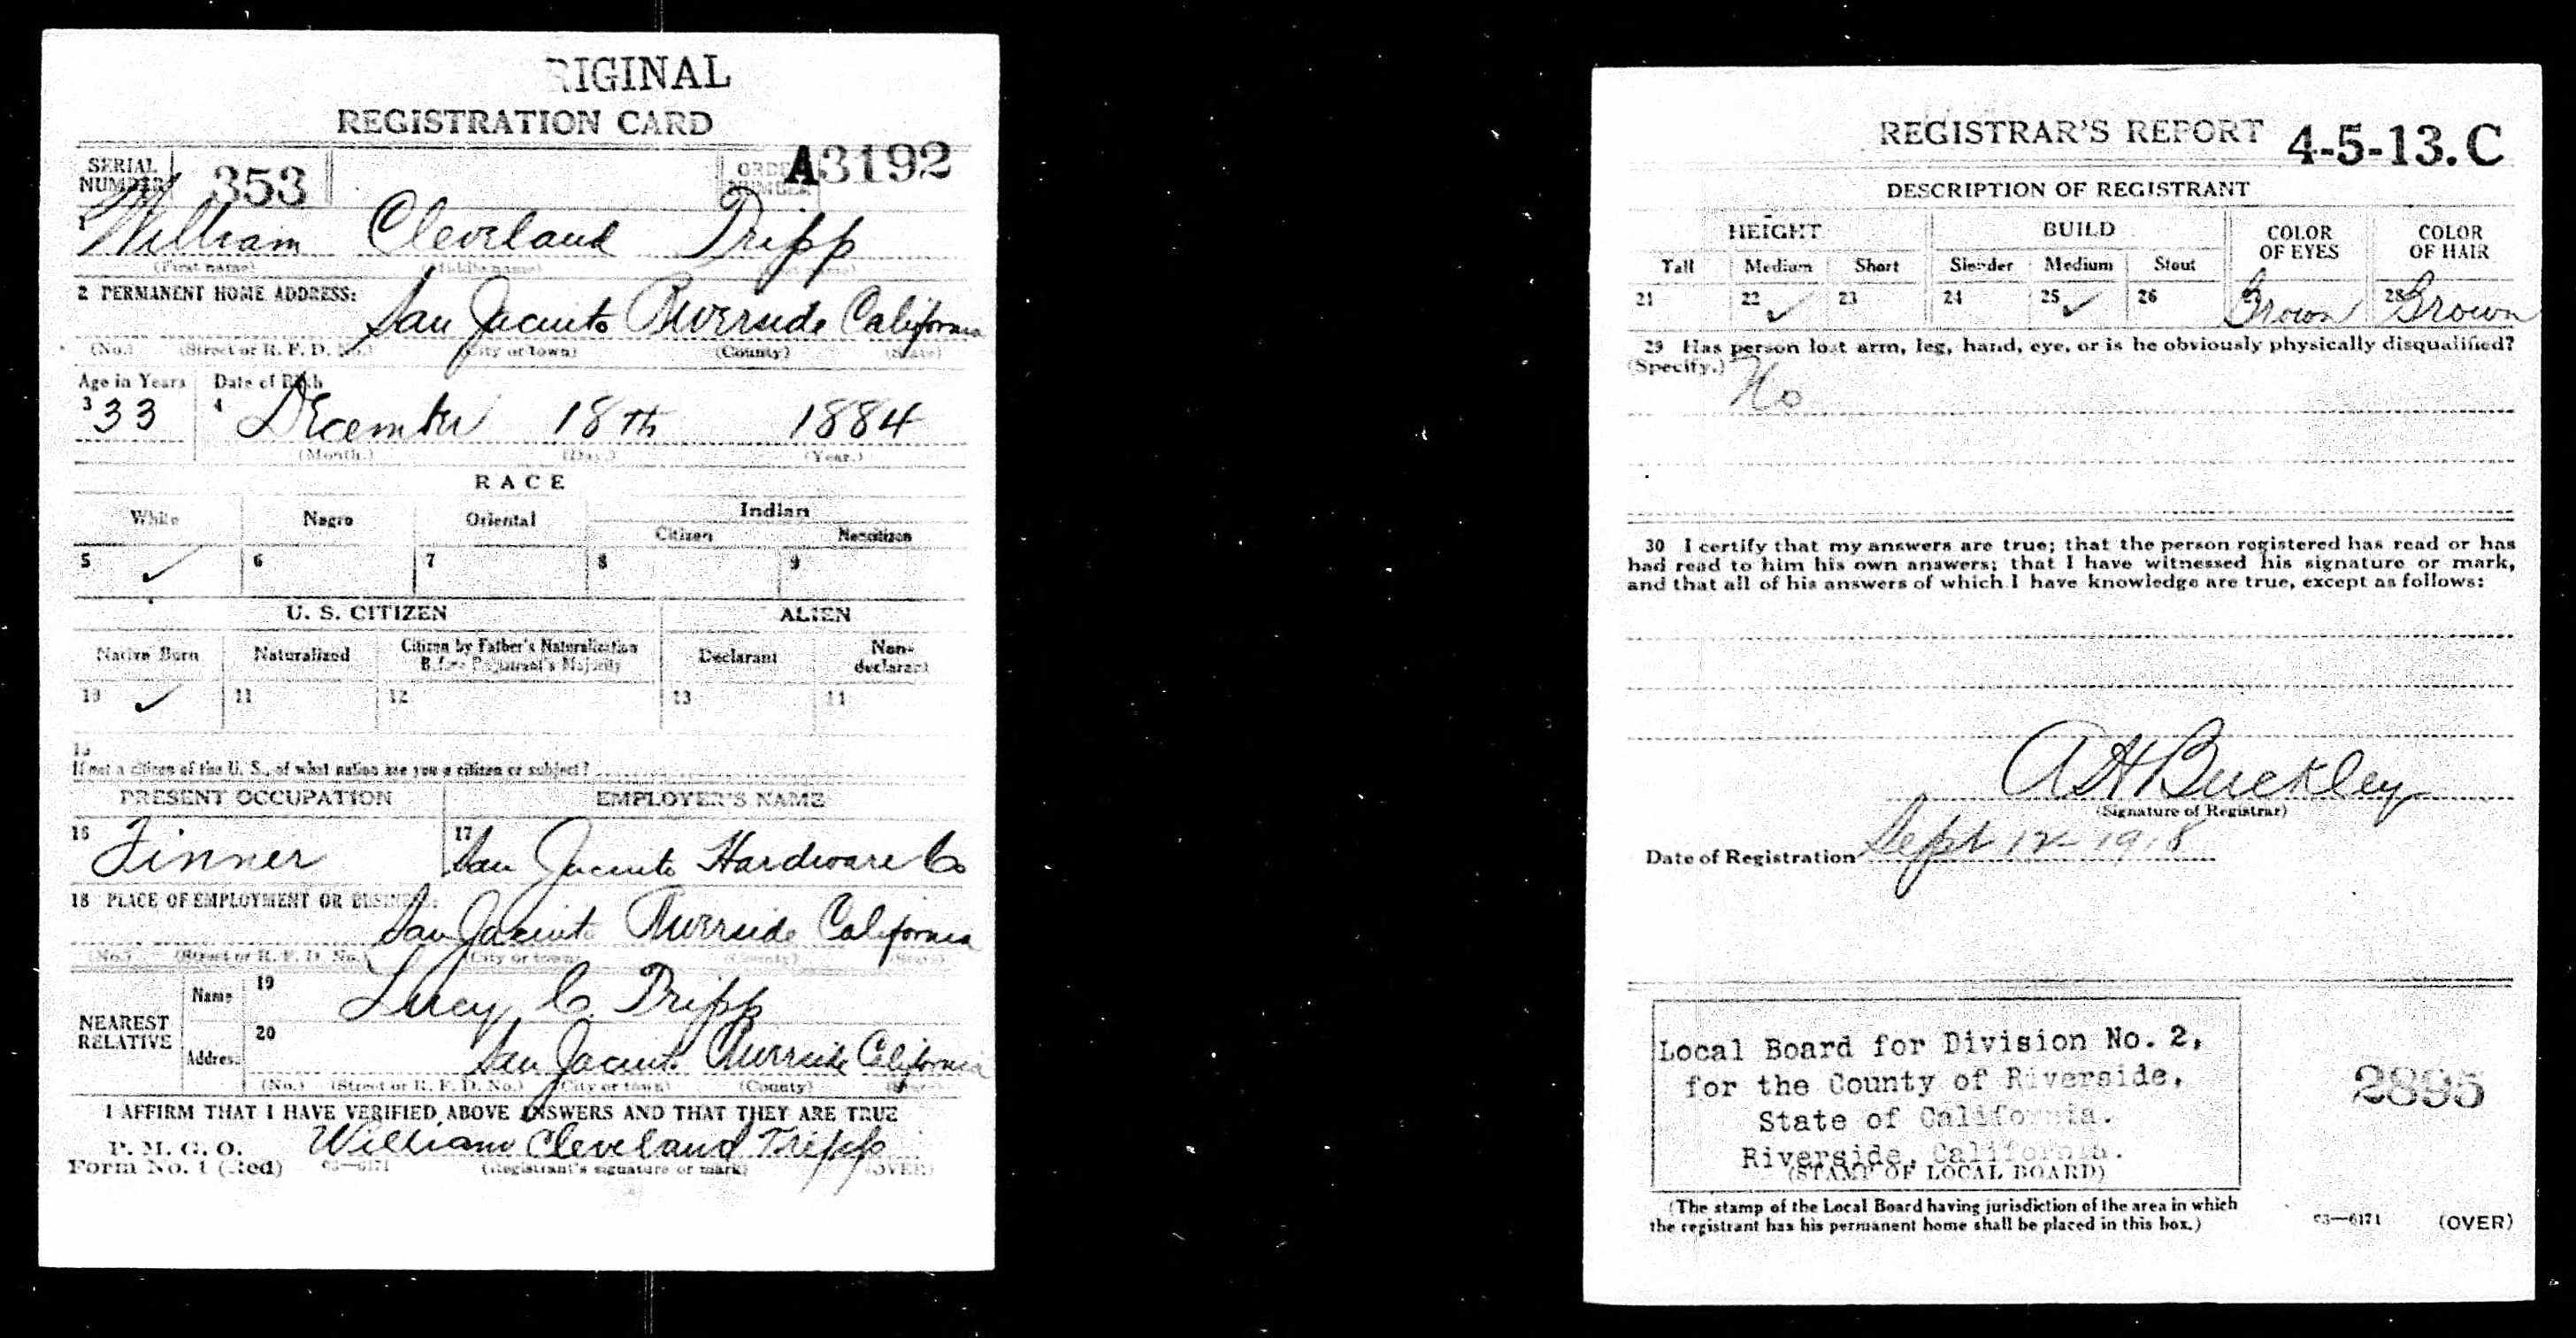 RIGINAL
REGISTRATION CARD
SERIAL NUMBER 353 ORDER NUMBER A3192
1 William Cleveland Tripp
(First name) (Middle name) (Last name)
2 PERMANENT HOME ADDRESS:
San Jacinto Riverside California
(No.) (Street or R. F. D. No.) (City or town) (County) (State)
Age in Years Date of Birth
3 33 4 December 18th 1884
(Month.) (Day.) (Year.)
RACE
White Negro Oriental Indian
Citizen Noncitizen
5 ✓ 6 7 8 9
U. S. CITIZEN ALIEN
Native Born Naturalized Citizen by Father's Naturalization Before Registrant's Majority Declarant Non-declarant
10 ✓ 11 12 13 14
15
If not a citizen of the U. S., of what nation are you a citizen or subject?
PRESENT OCCUPATION EMPLOYER'S NAME
16 Tinner 17 San Jacinto Hardware Co
18 PLACE OF EMPLOYMENT OR BUSINESS:
San Jacinto Riverside California
(No.) (Street or R. F. D. No.) (City or town) (County) (State)
NEAREST RELATIVE
Name 19 Lucy C. Tripp
Address 20 San Jacinto Riverside California
(No.) (Street or R. F. D. No.) (City or town) (County) (State)
I AFFIRM THAT I HAVE VERIFIED ABOVE ANSWERS AND THAT THEY ARE TRUE
P. M. G. O.
Form No. 1 (Red) 03—6171 William Cleveland Tripp
(Registrant's signature or mark) (OVER)
REGISTRAR'S REPORT 4-5-13.C
DESCRIPTION OF REGISTRANT
HEIGHT BUILD COLOR OF EYES COLOR OF HAIR
Tall Medium Short Slender Medium Stout
21 22 ✓ 23 24 25 ✓ 26 27 Brown 28 Brown
29 Has person lost arm, leg, hand, eye, or is he obviously physically disqualified?
(Specify.) No
30 I certify that my answers are true; that the person registered has read or has
had read to him his own answers; that I have witnessed his signature or mark,
and that all of his answers of which I have knowledge are true, except as follows:
A H Buckley
(Signature of Registrar)
Date of Registration Sept 12 - 1918
Local Board for Division No. 2,
for the County of Riverside,
State of California.
Riverside, California.
(STAMP OF LOCAL BOARD)
2895
(The stamp of the Local Board having jurisdiction of the area in which
the registrant has his permanent home shall be placed in this box.)
03—6171 (OVER)